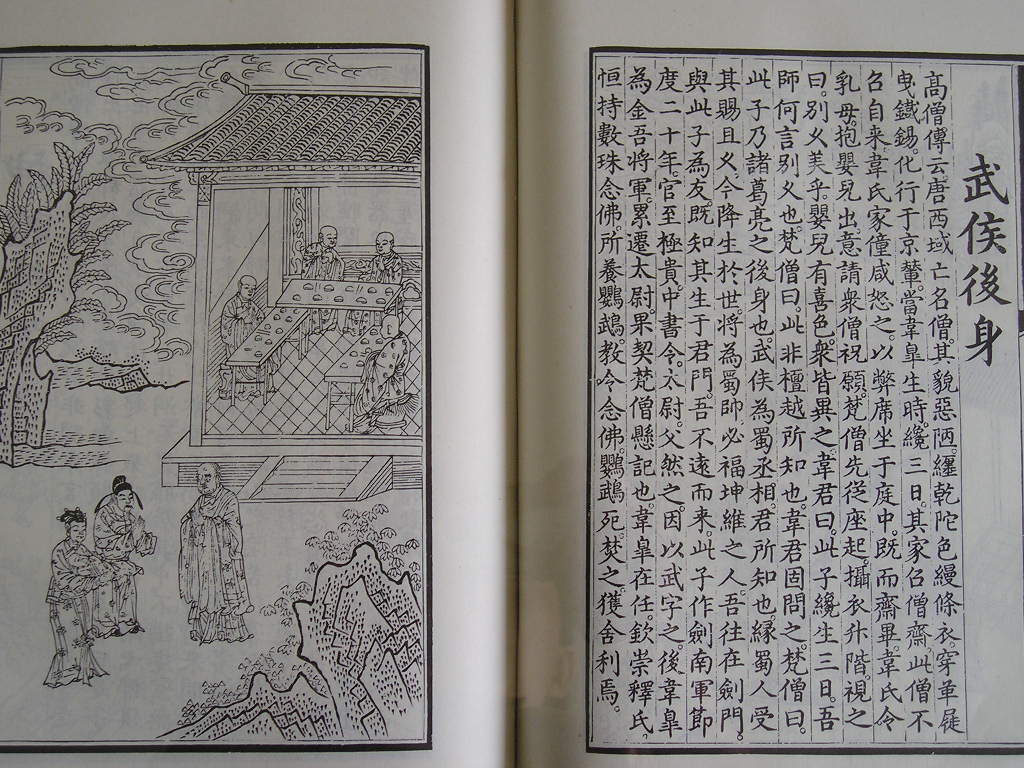 武侯後身
高僧傳云唐西域亡名僧其貌惡陋纏乾陀色縵條衣穿革屣
曳鐵錫化行于京輦當韋皐生時纔三日其家召僧齋此僧不
召自来韋氏家僮咸怒之以弊席坐于庭中既而齋畢韋氏令
乳母抱嬰兒出意請衆僧祝願梵僧先従座起攝衣升階視之
曰別乂羙乎嬰兒有喜色衆皆異之韋君曰此子纔生三日吾
師何言別乂也梵僧曰此非檀越所知也韋君固問之梵僧曰
此子乃諸葛亮之後身也武侯為蜀丞相君所知也縁蜀人受
其賜且乂今降生於世将為蜀帥必福坤維之人吾往在劍門
與此子為友既知其生于君門吾不逺而来此子作劍南軍節
度二十年官至極貴中書令太尉父然之因以武字之後韋皐
為金吾将軍累遷太尉果契梵僧懸記也韋皐在任欽崇釋氏
恒持數珠念佛所養鸚鵡教令念佛鸚鵡死焚之獲舍利焉